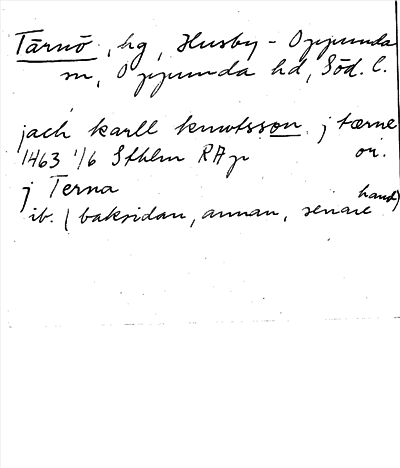 Tärnö, hg, Husby-Oppunda
sn, Oppunda hd, Söd. l.
jach karll knwtsson j tærne
1463 1/6 Sthlm RAp or.
j Terna
ib. (baksidan, annan, senare hand)